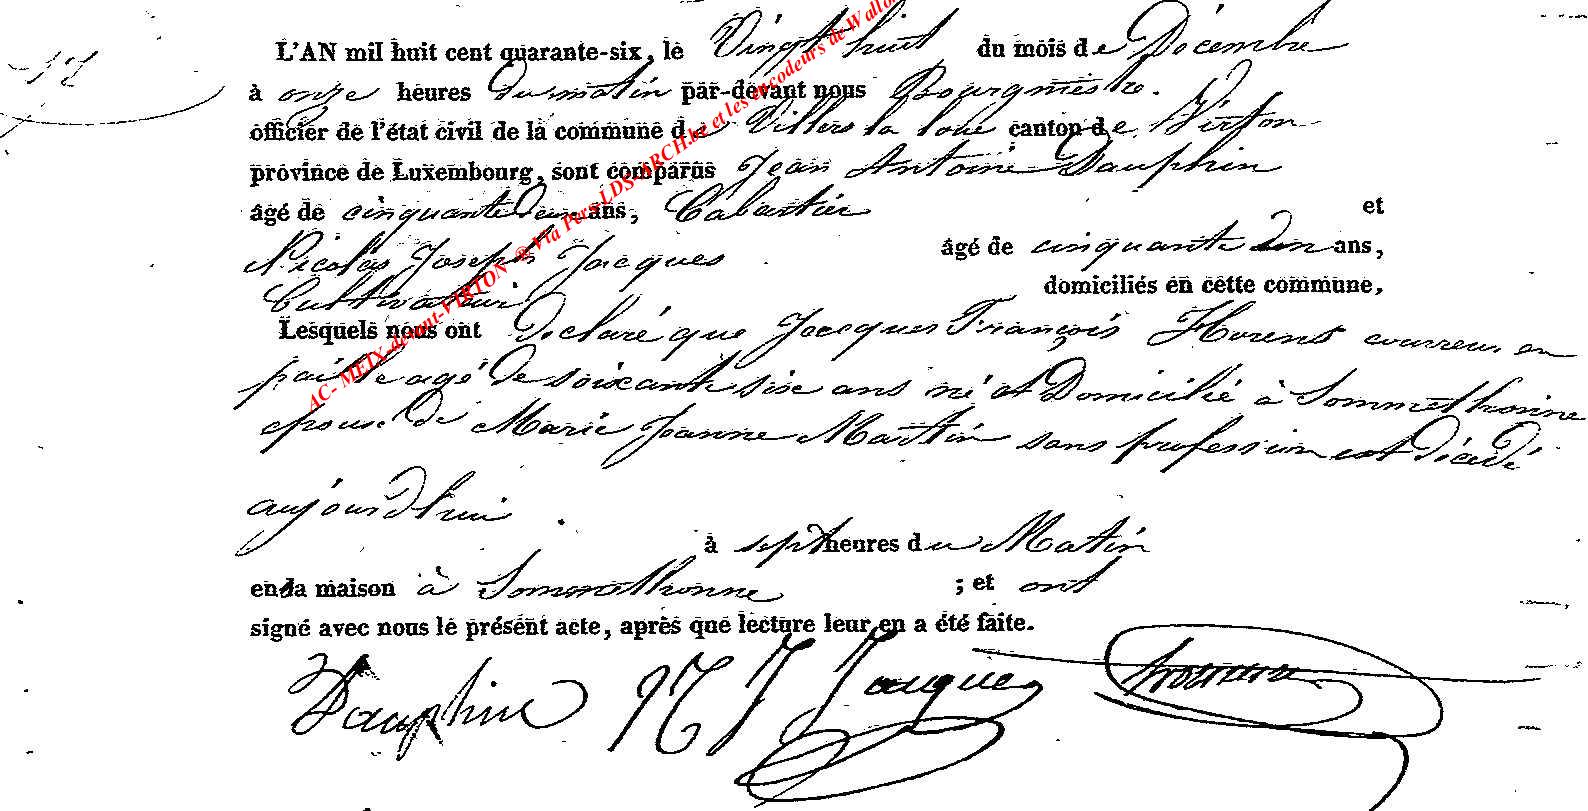 17
L'AN mil huit cent quarante-six, le Vingt huit du mois de Décembre
à onze heures du matin par-devant nous Bourgmestre.
officier de l'état civil de la commune de Villers la loue canton de Virton
province de Luxembourg, sont comparus Jean Antoine Dauphin
âgé de cinquante deux ans, Cabartier et
Nicolas Joseph Jacques âgé de cinquante un ans,
Cultivateur domiciliés en cette commune,
Lesquels nous ont declaré que Jacques François Horens couvreur en
paille agé de soixante six ans né et Domicilié à Sommethonne
epoux de Marie Jeanne Martin sans profession est décédé
aujourd'hui.
à sept heures du Matin
en sa maison à Sommethonne ; et ont
signé avec nous le présent acte, après que lecture leur en a été faite.
Dauphin NJ Jacques
AC- MEIX-devant-VIRTON ® Via Pers LDS-ARCH.be et les encodeurs de Wallon